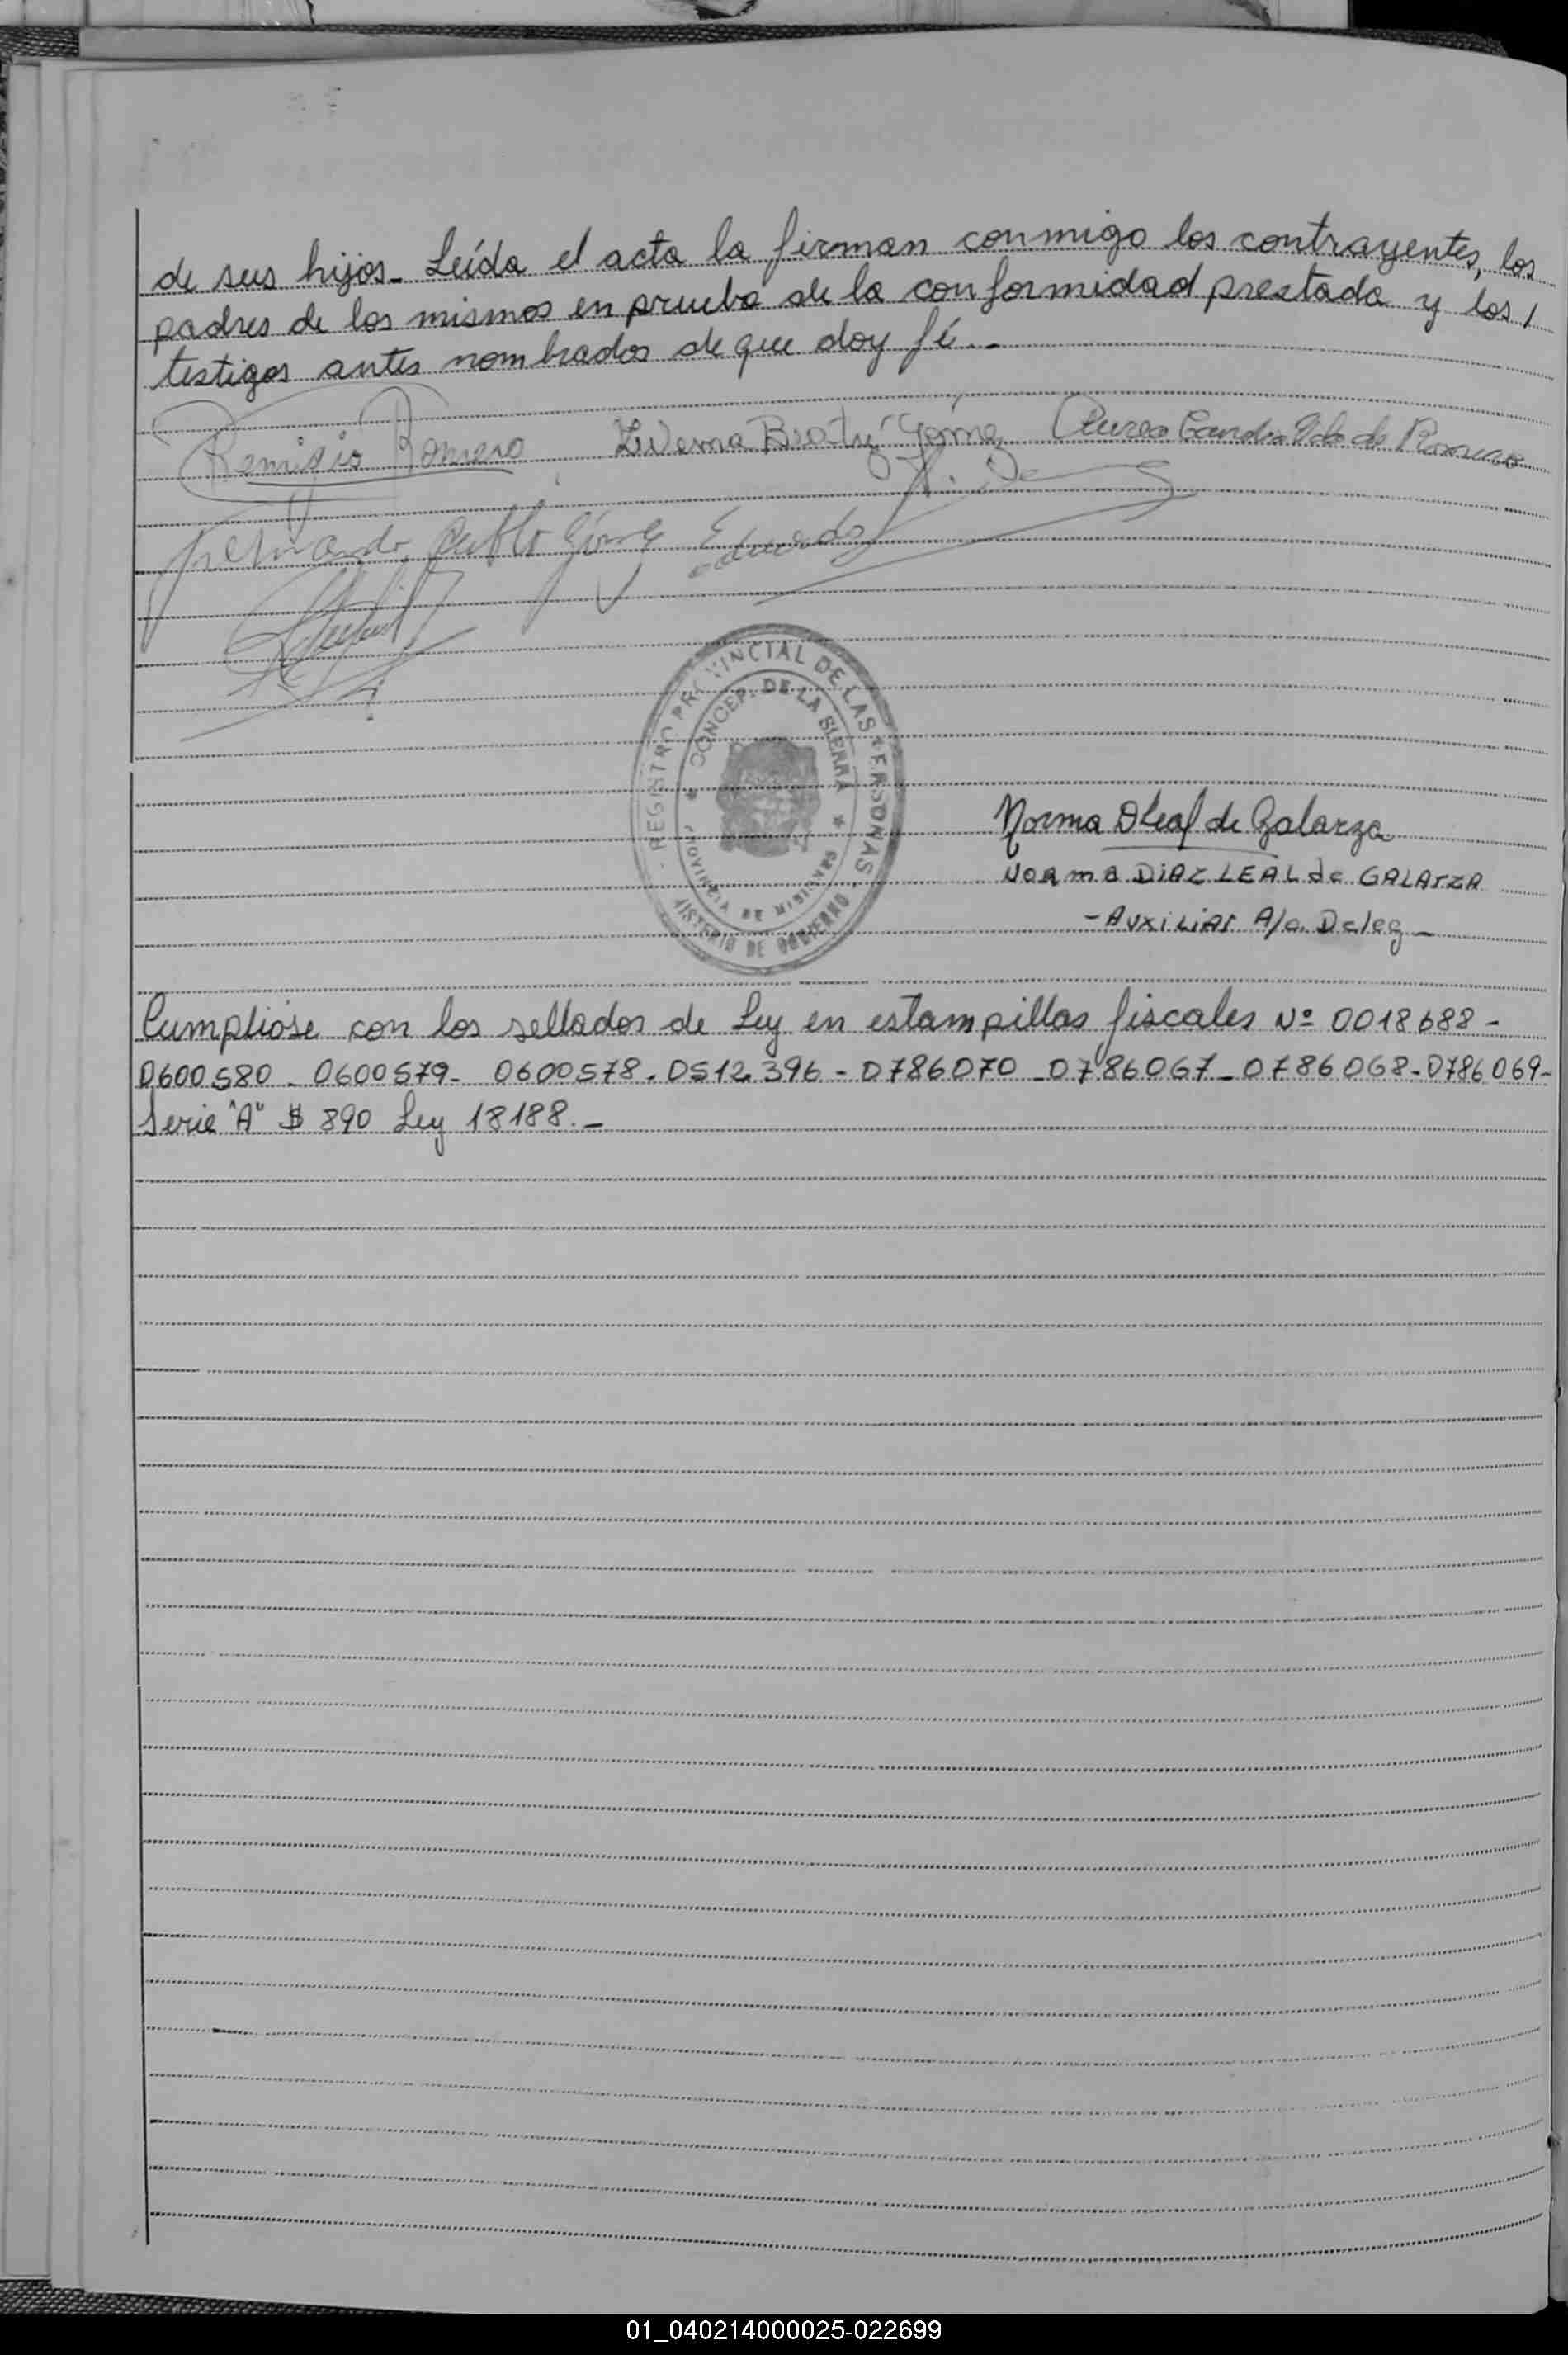 de sus hijos_ Leída el acta la firman conmigo los contrayentes, los
padres de los mismos en prueba de la conformidad prestada y los /
testigos antes nombrados de que doy fé._
Remigio Romero Beatriz Gómez de Romero
Fernando Pablo Gómez Eduardo
REGISTRO PROVINCIAL DE LAS PERSONAS
CONCEP. DE LA SIERRA
PROVINCIA DE MISIONES
MINISTERIO DE GOBIERNO
Norma DLeal de Galarza
NORMA DIAZ LEAL de GALARZA
- AUXILIAR A/c. Deleg_
Cumplióse con los sellados de Ley en estampillas fiscales Nº 0018688 -
0600580 - 0600579 - 0600578 - 0512396 - 0786070 - 0786067 - 0786068 - 0786069 -
Serie "A" $ 890 Ley 18188._
01_040214000025-022699